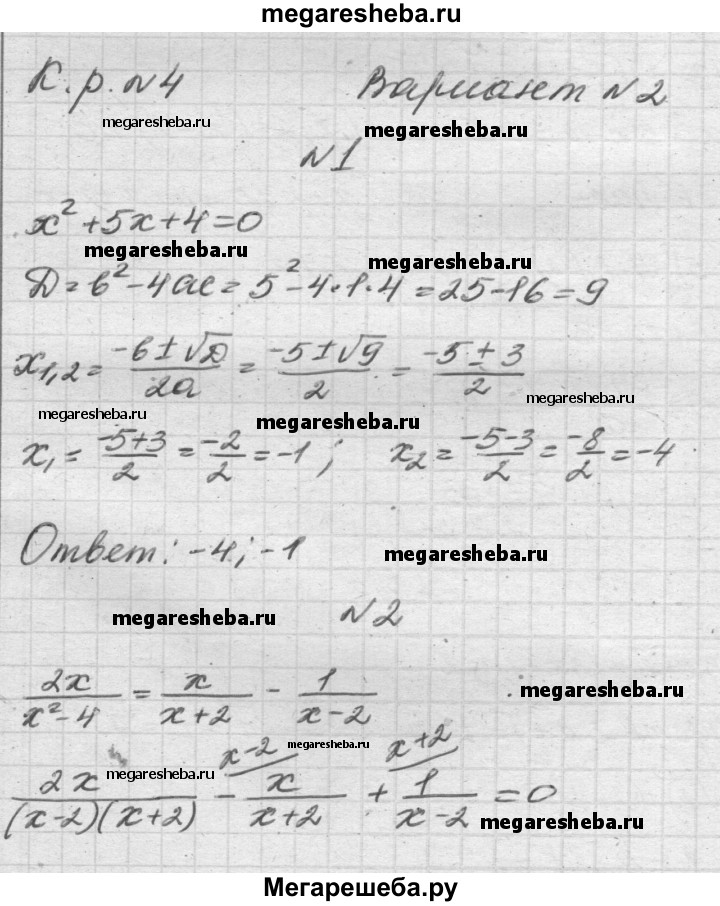 megaresheba.ru
К.р. №4 Вариант №2
megaresheba.ru megaresheba.ru
№1
x² + 5x + 4 = 0
megaresheba.ru megaresheba.ru
Д = b² - 4ac = 5² - 4·1·4 = 25 - 16 = 9
x₁,₂ = (-b ± √D)/(2a) = (-5 ± √9)/2 = (-5 ± 3)/2
megaresheba.ru megaresheba.ru megaresheba.ru
x₁ = (-5+3)/2 = -2/2 = -1; x₂ = (-5-3)/2 = -8/2 = -4
Ответ: -4; -1
megaresheba.ru
megaresheba.ru №2
2x/(x²-4) = x/(x+2) - 1/(x-2)
megaresheba.ru
megaresheba.ru x-2 megaresheba.ru x+2
2x/((x-2)(x+2)) - x/(x+2) + 1/(x-2) = 0
megaresheba.ru
Мегарешеба.ру